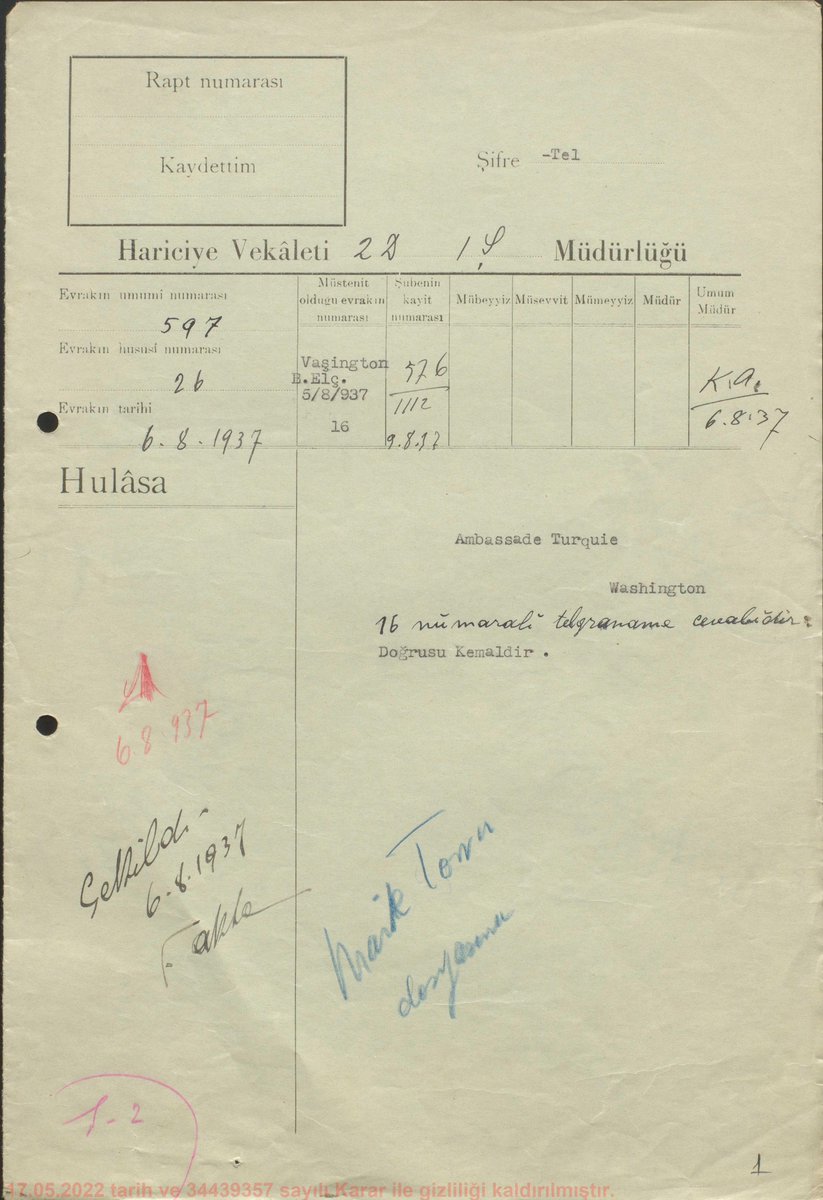 Rapt numarası
Kaydettim
Şifre -Tel
Hariciye Vekâleti 2 D 1 Ş Müdürlüğü
Evrakın umumî numarası
597
Evrakın hususî numarası
26
Evrakın tarihi
6.8.1937
Müstenit olduğu evrakın numarası
Vaşington
B.Elç.
5/8/937
16
Şubenin kayit numarası
576
1112
9.8.37
Mübeyyiz
Müsevvit
Mümeyyiz
Müdür
Umum Müdür
K.A.
6.8.37
Hulâsa
Ambassade Turquie
Washington
16 numaralı telgraname cevabıdır:
Doğrusu Kemaldir .
6.8.937
Çekildi
6.8.1937
Mark Town
dosyasına
1-2
1
17.05.2022 tarih ve 34439357 sayılı Karar ile gizliliği kaldırılmıştır.